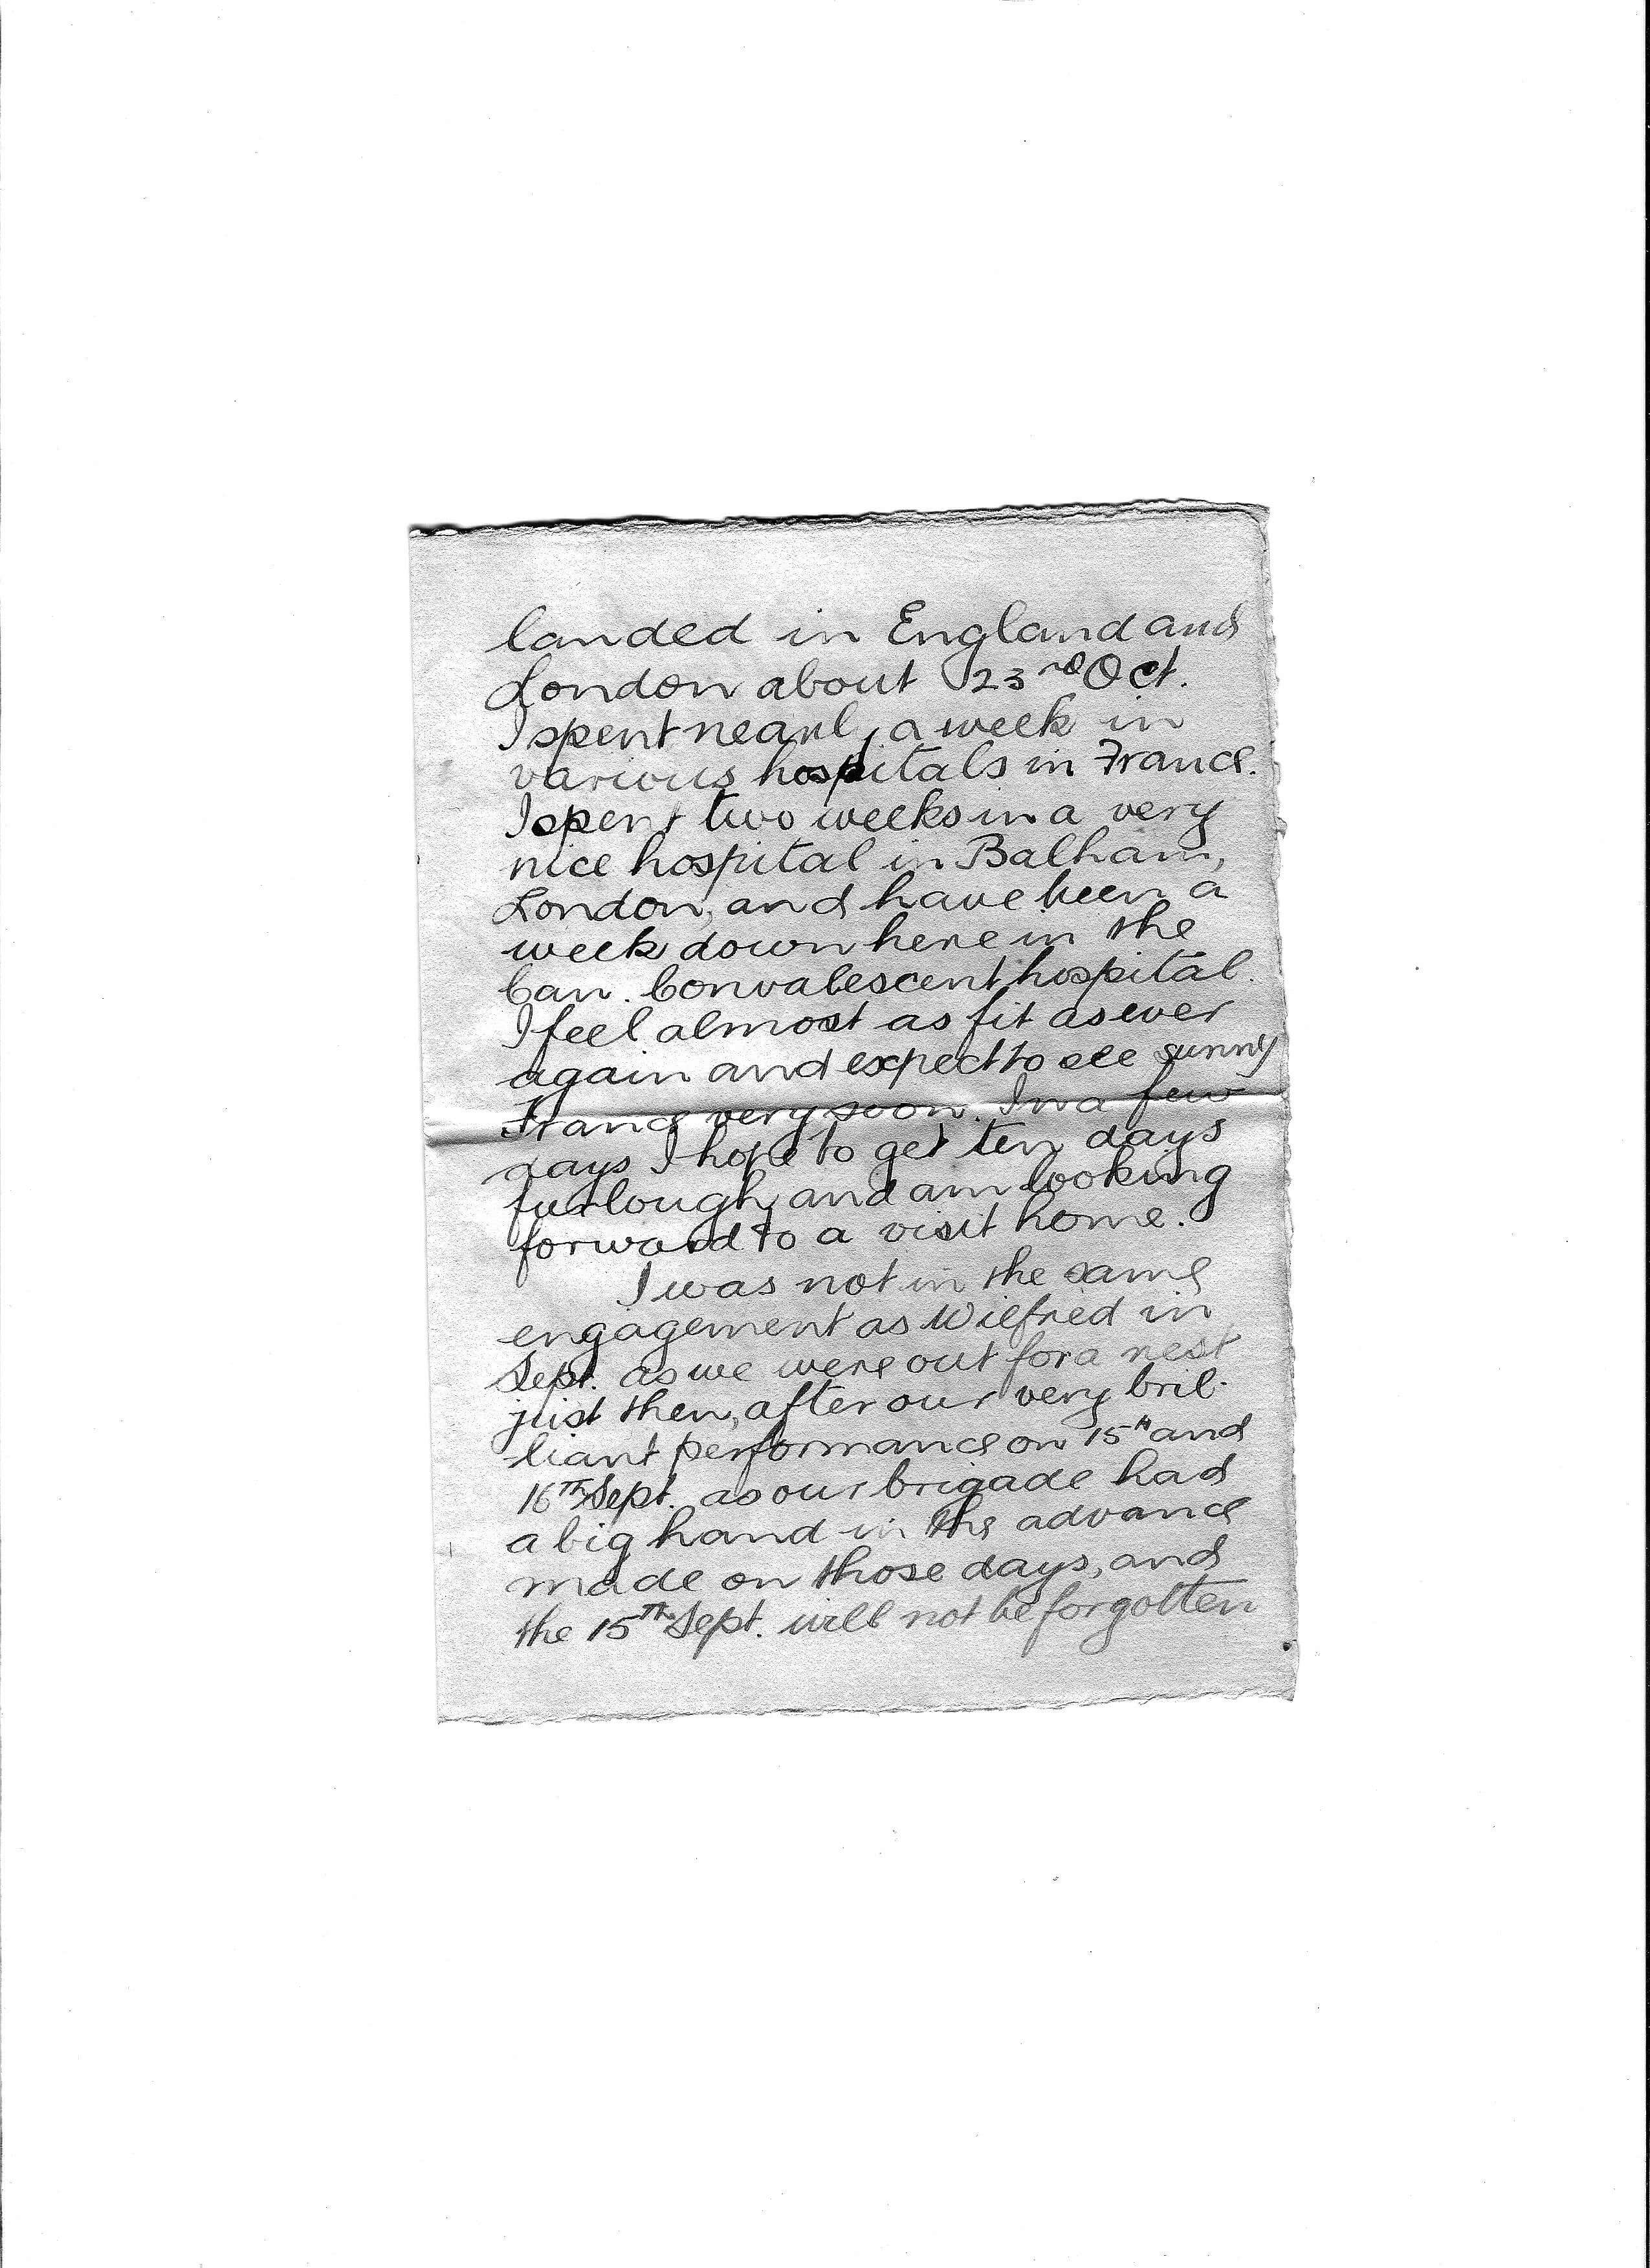 landed in England and
London about 23rd Oct.
I spent nearly a week in
various hospitals in France.
I spent two weeks in a very
nice hospital in Balham,
London, and have been a
week down here in the
Can. Convalescent hospital.
I feel almost as fit as ever
again and expect to see sunny
France very soon. In a few
days I hope to get ten days
furlough, and am looking
forward to a visit home.
I was not in the same
engagement as Wilfred in
Sept. as we were out for a rest
just then, after our very bril-
liant performance on 15th and
16th Sept. as our brigade had
a big hand in the advance
made on those days, and
the 15th Sept. will not be forgotten